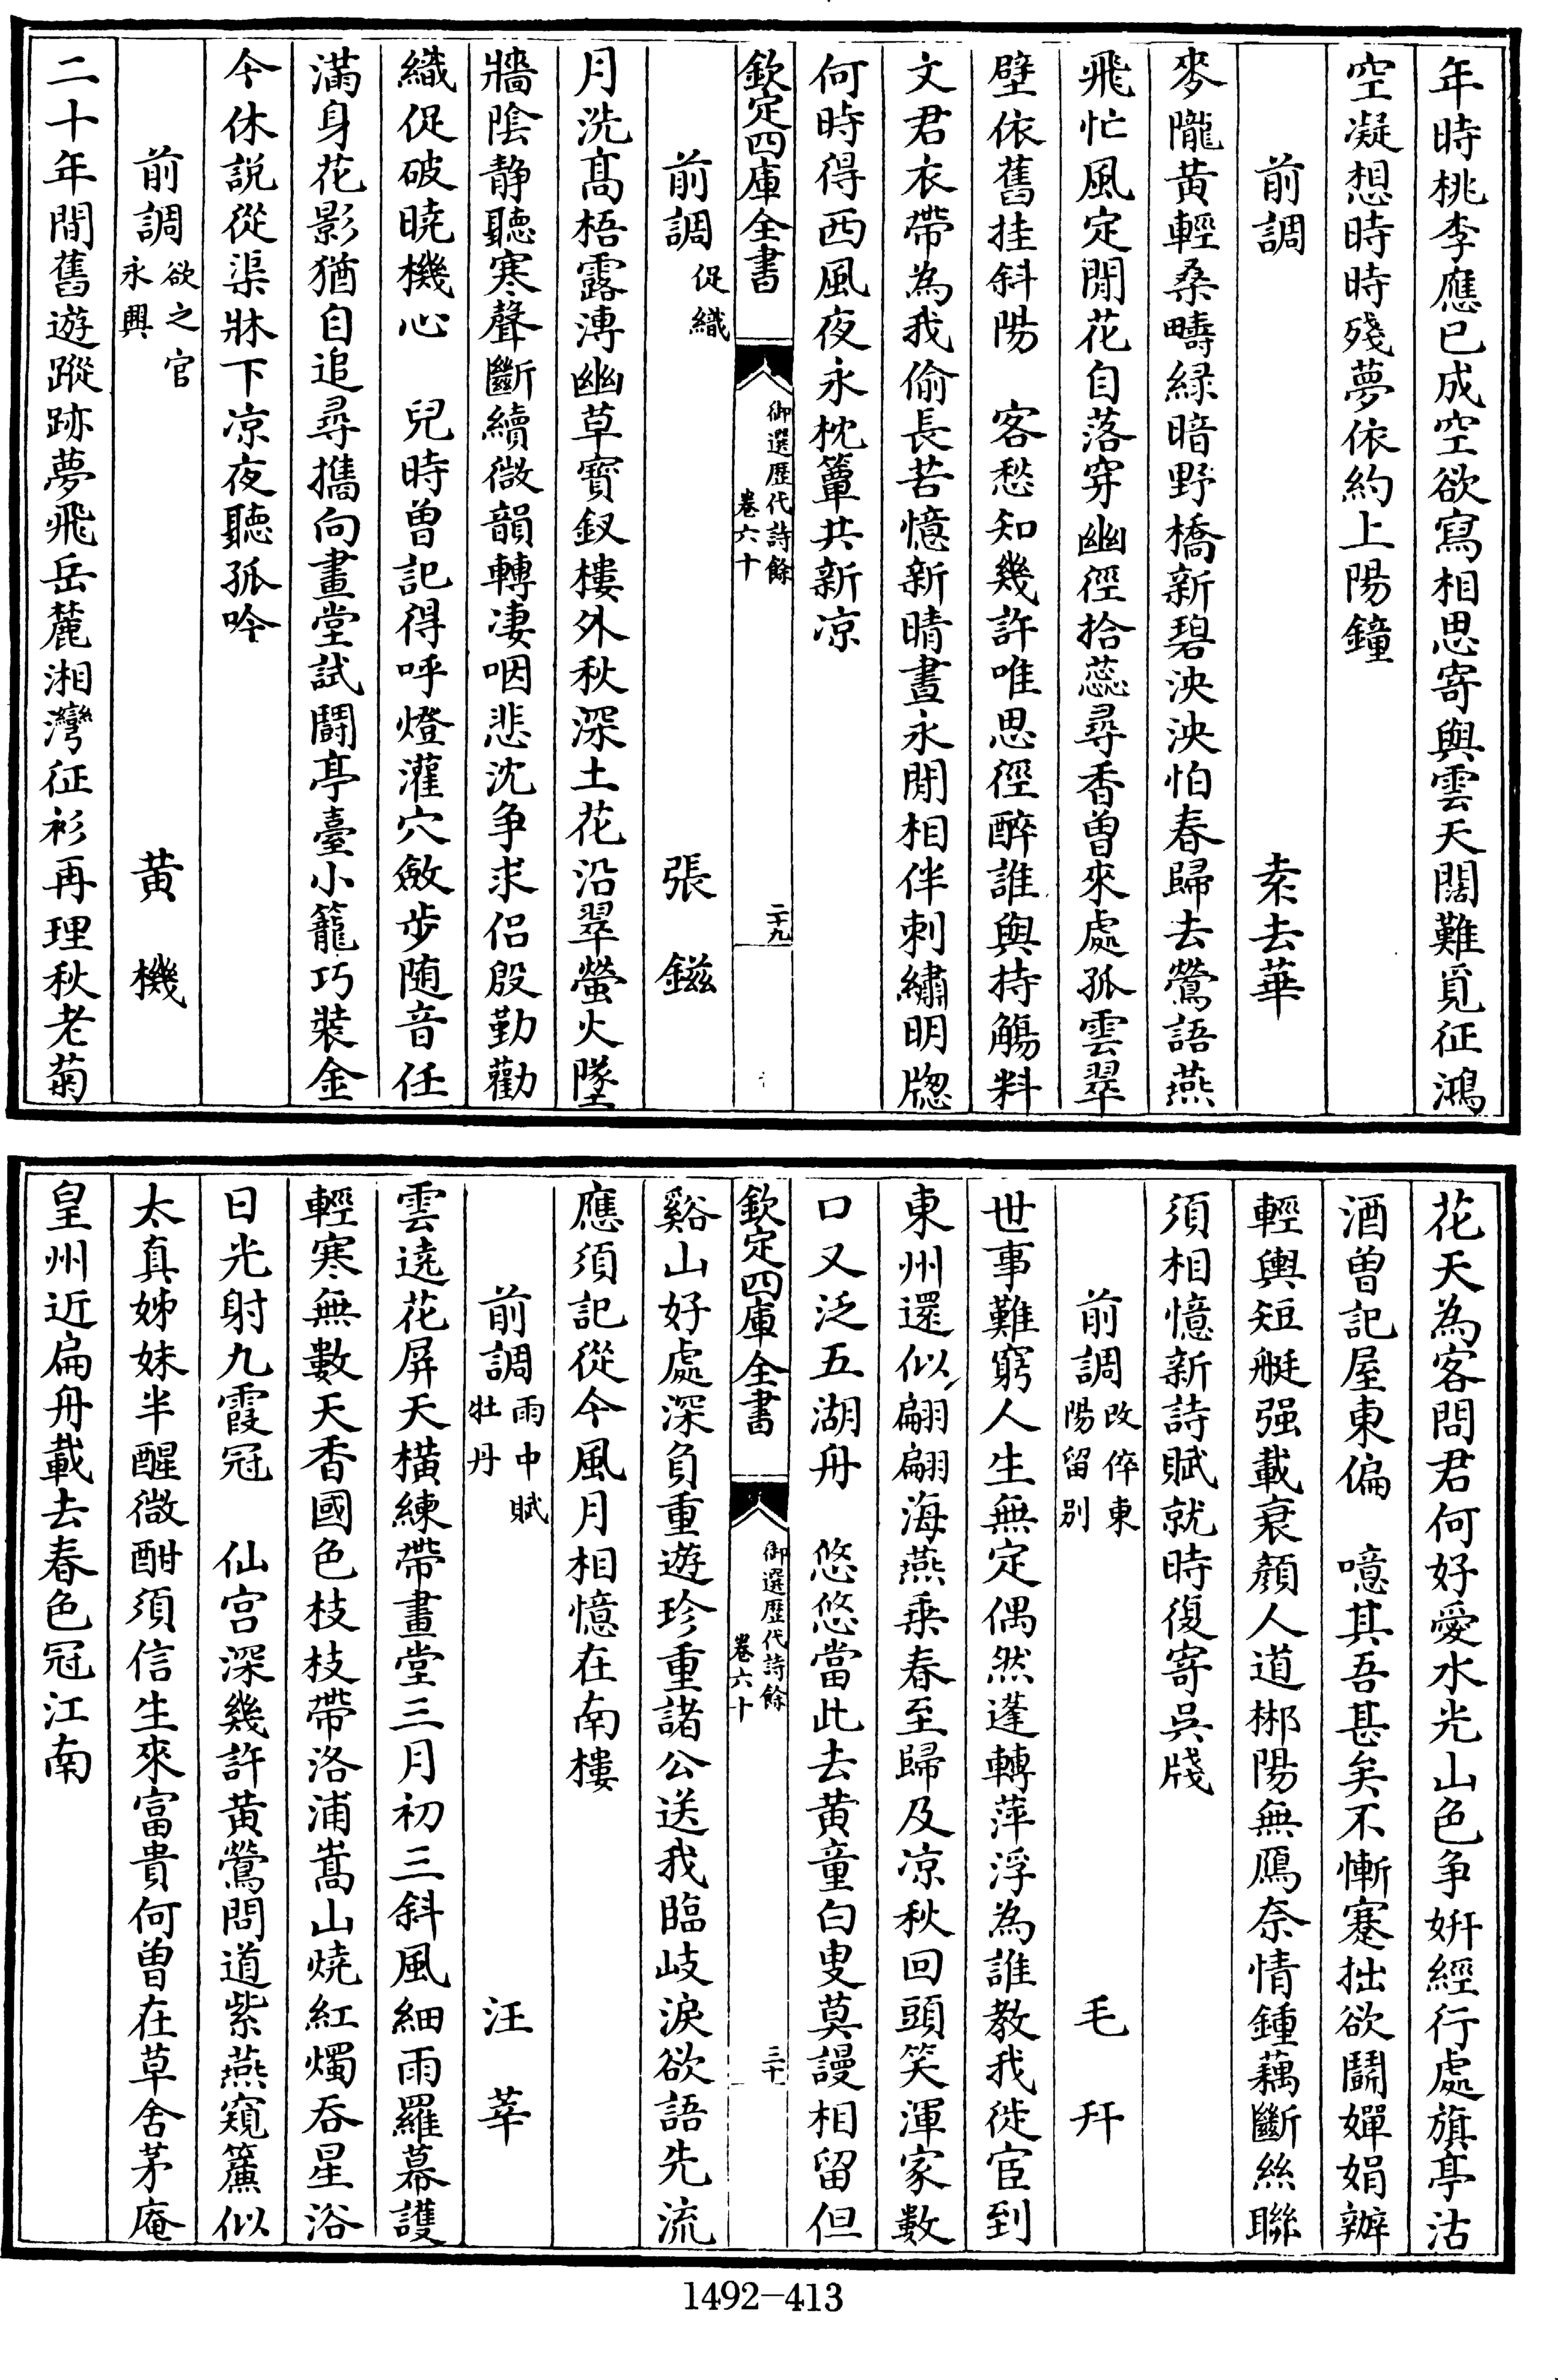 年時桃李應已成空欲寫相思寄與雲天闊難覓征鴻
空凝想時時殘夢依約上陽鐘
前調　索去華
麥隴黄輕桑疇緑暗野橋新碧泱泱怕春歸去鶯語燕
飛忙風定閒花自落穿幽徑拾蕊尋香曾來處孤雲翠
壁依舊挂斜陽　客愁知幾許唯思徑醉誰與持觴料
文君衣帶為我偷長苦憶新晴晝永閒相伴刺繡明牎
何時得西風夜永枕簟共新凉
欽定四庫全書　御選歴代詩餘　卷六十　二十九
前調　促織　張鎡
月洗髙梧露漙幽草寳釵樓外秋深土花沿翠螢火墜
牆隂静聽寒聲斷續微韻轉凄咽悲沈争求侣殷勤勸
織促破曉機心　兒時曾記得呼燈灌穴斂步随音任
滿身花影猶自追尋攜向畫堂試鬬亭臺小籠巧裝金
今休説從渠牀下凉夜聽孤吟
前調　欲之官永興　黄機
二十年間舊遊蹤跡夢飛岳麓湘灣征衫再理秋老菊
花天為客問君何好愛水光山色争妍經行處旗亭沽
酒曾記屋東偏　噫其吾甚矣不慚蹇拙欲鬭嬋娟辦
輕輿短艇强載衰顔人道郴陽無鴈奈情鍾藕斷絲聯
須相憶新詩賦就時復寄吳牋
前調　改倅東陽留别　毛幵
世事難窮人生無定偶然蓬轉萍浮為誰教我徙宦到
東州還似翩翩海燕乗春至歸及凉秋回頭笑渾家數
口又泛五湖舟　悠悠當此去黄童白叟莫謾相留但
谿山好處深負重遊珍重諸公送我臨岐淚欲語先流
應須記從今風月相憶在南樓
欽定四庫全書　御選歴代詩餘　卷六十　三十
前調　雨中賦牡丹　汪莘
雲逺花屏天横練帶畫堂三月初三斜風細雨羅幕護
輕寒無數天香國色枝枝帶洛浦嵩山燒紅燭吞星浴
日光射九霞冠　仙宫深幾許黄鶯問道紫燕窺簾似
太真姊妹半醒微酣須信生來富貴何曾在草舍茅庵
皇州近扁舟載去春色冠江南
1492-413